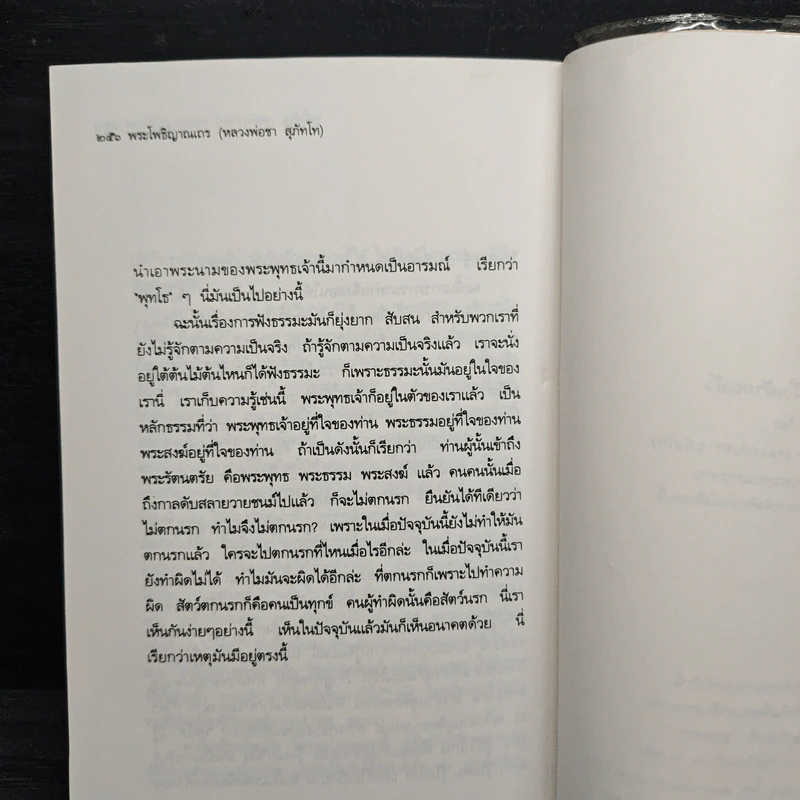 ๒๕๖ พระโพธิญาณเถร (หลวงพ่อชา สุภัทโท)
นำเอาพระนามของพระพุทธเจ้านี้มากำหนดเป็นอารมณ์ เรียกว่า
"พุทโธ" ๆ นี่มันเป็นไปอย่างนี้
ฉะนั้นเรื่องการฟังธรรมะมันก็ยุ่งยาก สับสน สำหรับพวกเราที่
ยังไม่รู้จักตามความเป็นจริง ถ้ารู้จักตามความเป็นจริงแล้ว เราจะนั่ง
อยู่ใต้ต้นไม้ต้นไหนก็ได้ฟังธรรมะ ก็เพราะธรรมะนั้นมันอยู่ในใจของ
เรานี่ เราเก็บความรู้เช่นนี้ พระพุทธเจ้าก็อยู่ในตัวของเราแล้ว เป็น
หลักธรรมที่ว่า พระพุทธเจ้าอยู่ที่ใจของท่าน พระธรรมอยู่ที่ใจของท่าน
พระสงฆ์อยู่ที่ใจของท่าน ถ้าเป็นดังนั้นก็เรียกว่า ท่านผู้นั้นเข้าถึง
พระรัตนตรัย คือพระพุทธ พระธรรม พระสงฆ์ แล้ว คนคนนั้นเมื่อ
ถึงกาลดับสลายวายชนม์ไปแล้ว ก็จะไม่ตกนรก ยืนยันได้ทีเดียวว่า
ไม่ตกนรก ทำไมจึงไม่ตกนรก? เพราะในเมื่อปัจจุบันนี้ยังไม่ทำให้มัน
ตกนรกแล้ว ใครจะไปตกนรกที่ไหนเมื่อไรอีกล่ะ ในเมื่อปัจจุบันนี้เรา
ยังทำผิดไม่ได้ ทำไมมันจะผิดได้อีกล่ะ ที่ตกนรกก็เพราะไปทำความ
ผิด สัตว์ตกนรกก็คือคนเป็นทุกข์ คนผู้ทำผิดนั้นคือสัตว์นรก นี่เรา
เห็นกันง่ายๆอย่างนี้ เห็นในปัจจุบันแล้วมันก็เห็นอนาคตด้วย นี่
เรียกว่าเหตุมันมีอยู่ตรงนี้